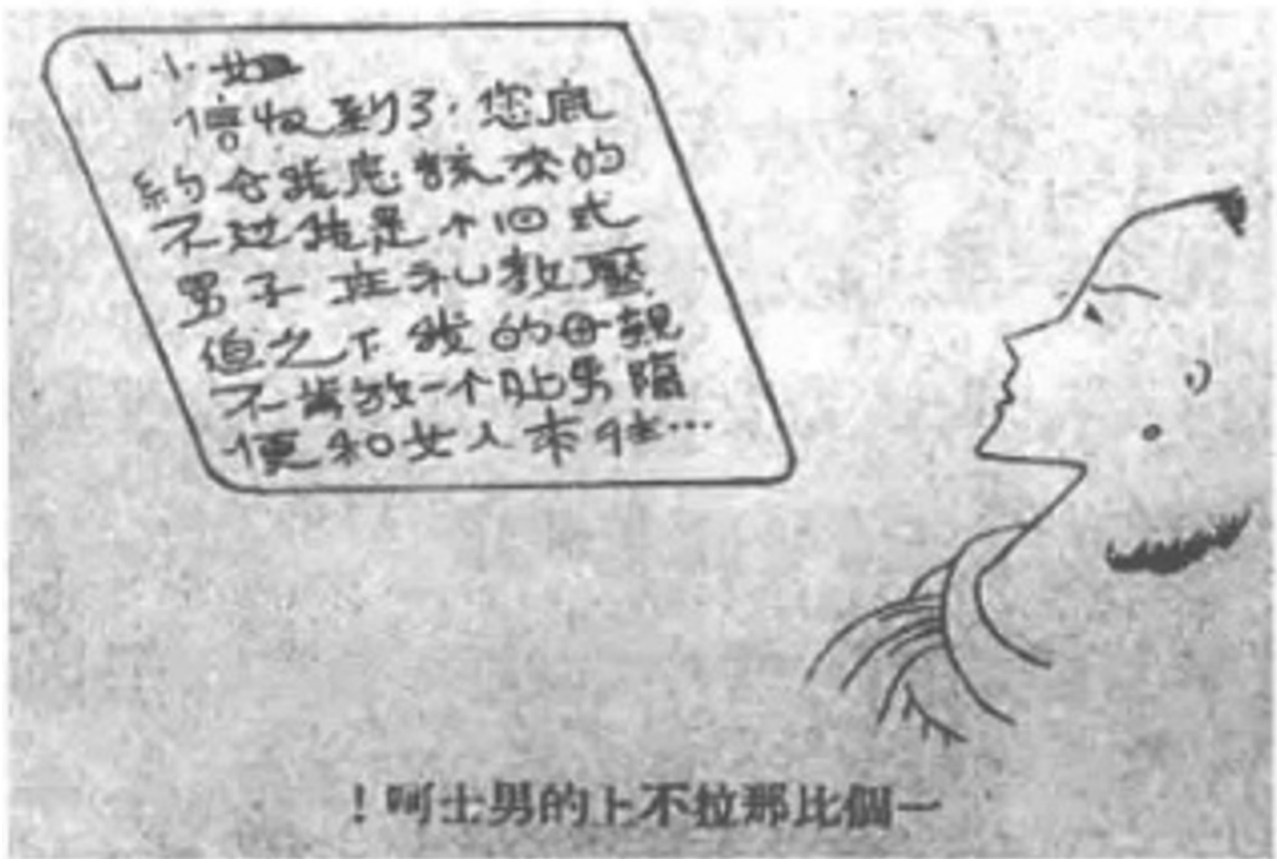 L.小姐
信收到了.您底
約会我应該來的
不过我是个旧式
男子在礼教壓
迫之下我的母親
不肯放一个处男隨
便和女人來往…
一個比那拉不上的男士呵！